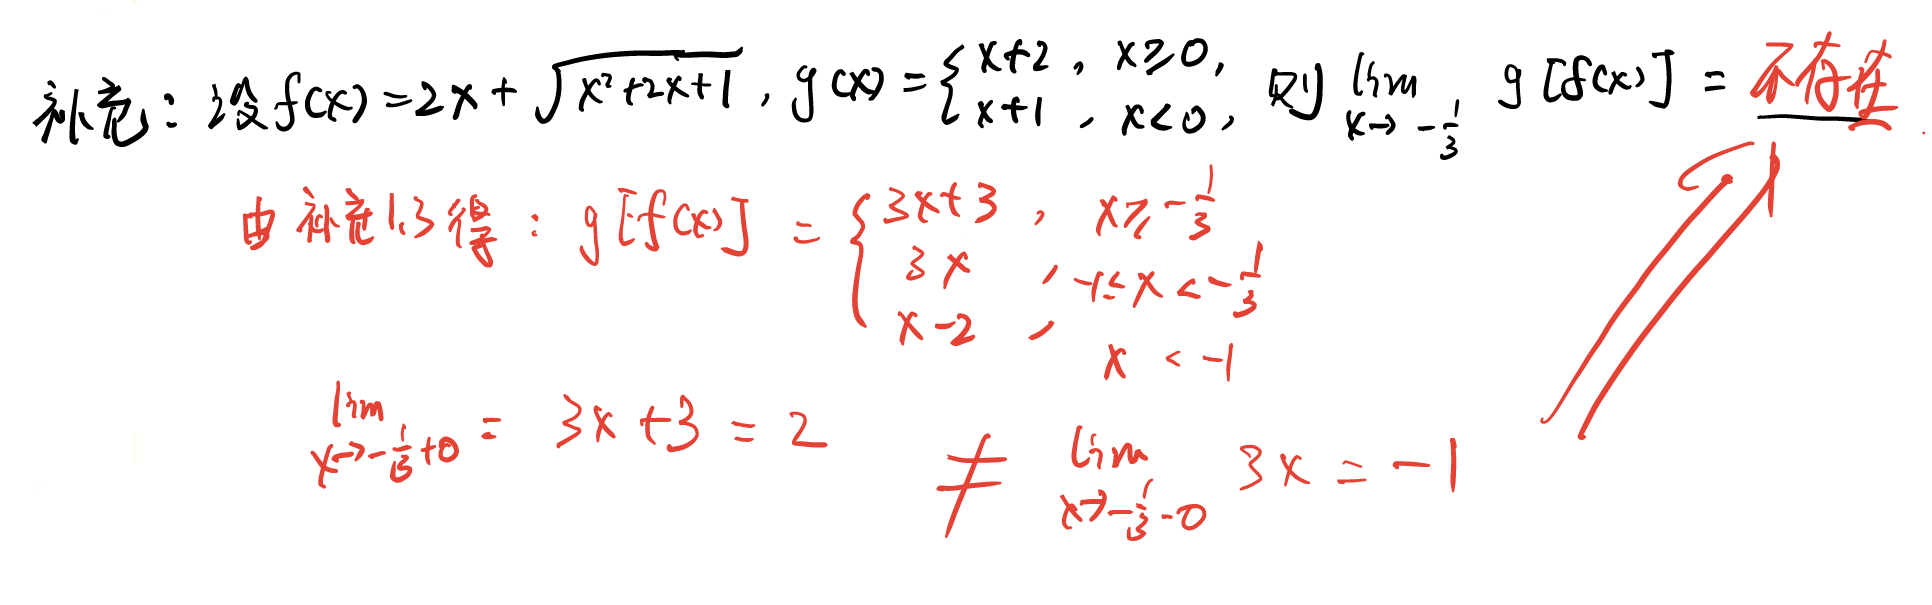 补充：设f(x)=2x+√(x²+2x+1), g(x)={x+2, x≥0, x+1, x<0, 则 lim x→-1/3 g[f(x)] = 不存在.
由补充1.3得：g[f(x)] = {3x+3, x≥-1/3
3x, -1≤x<-1/3
x-2, x<-1
lim x→-1/3+0 = 3x+3=2 ≠ lim x→-1/3-0 3x=-1